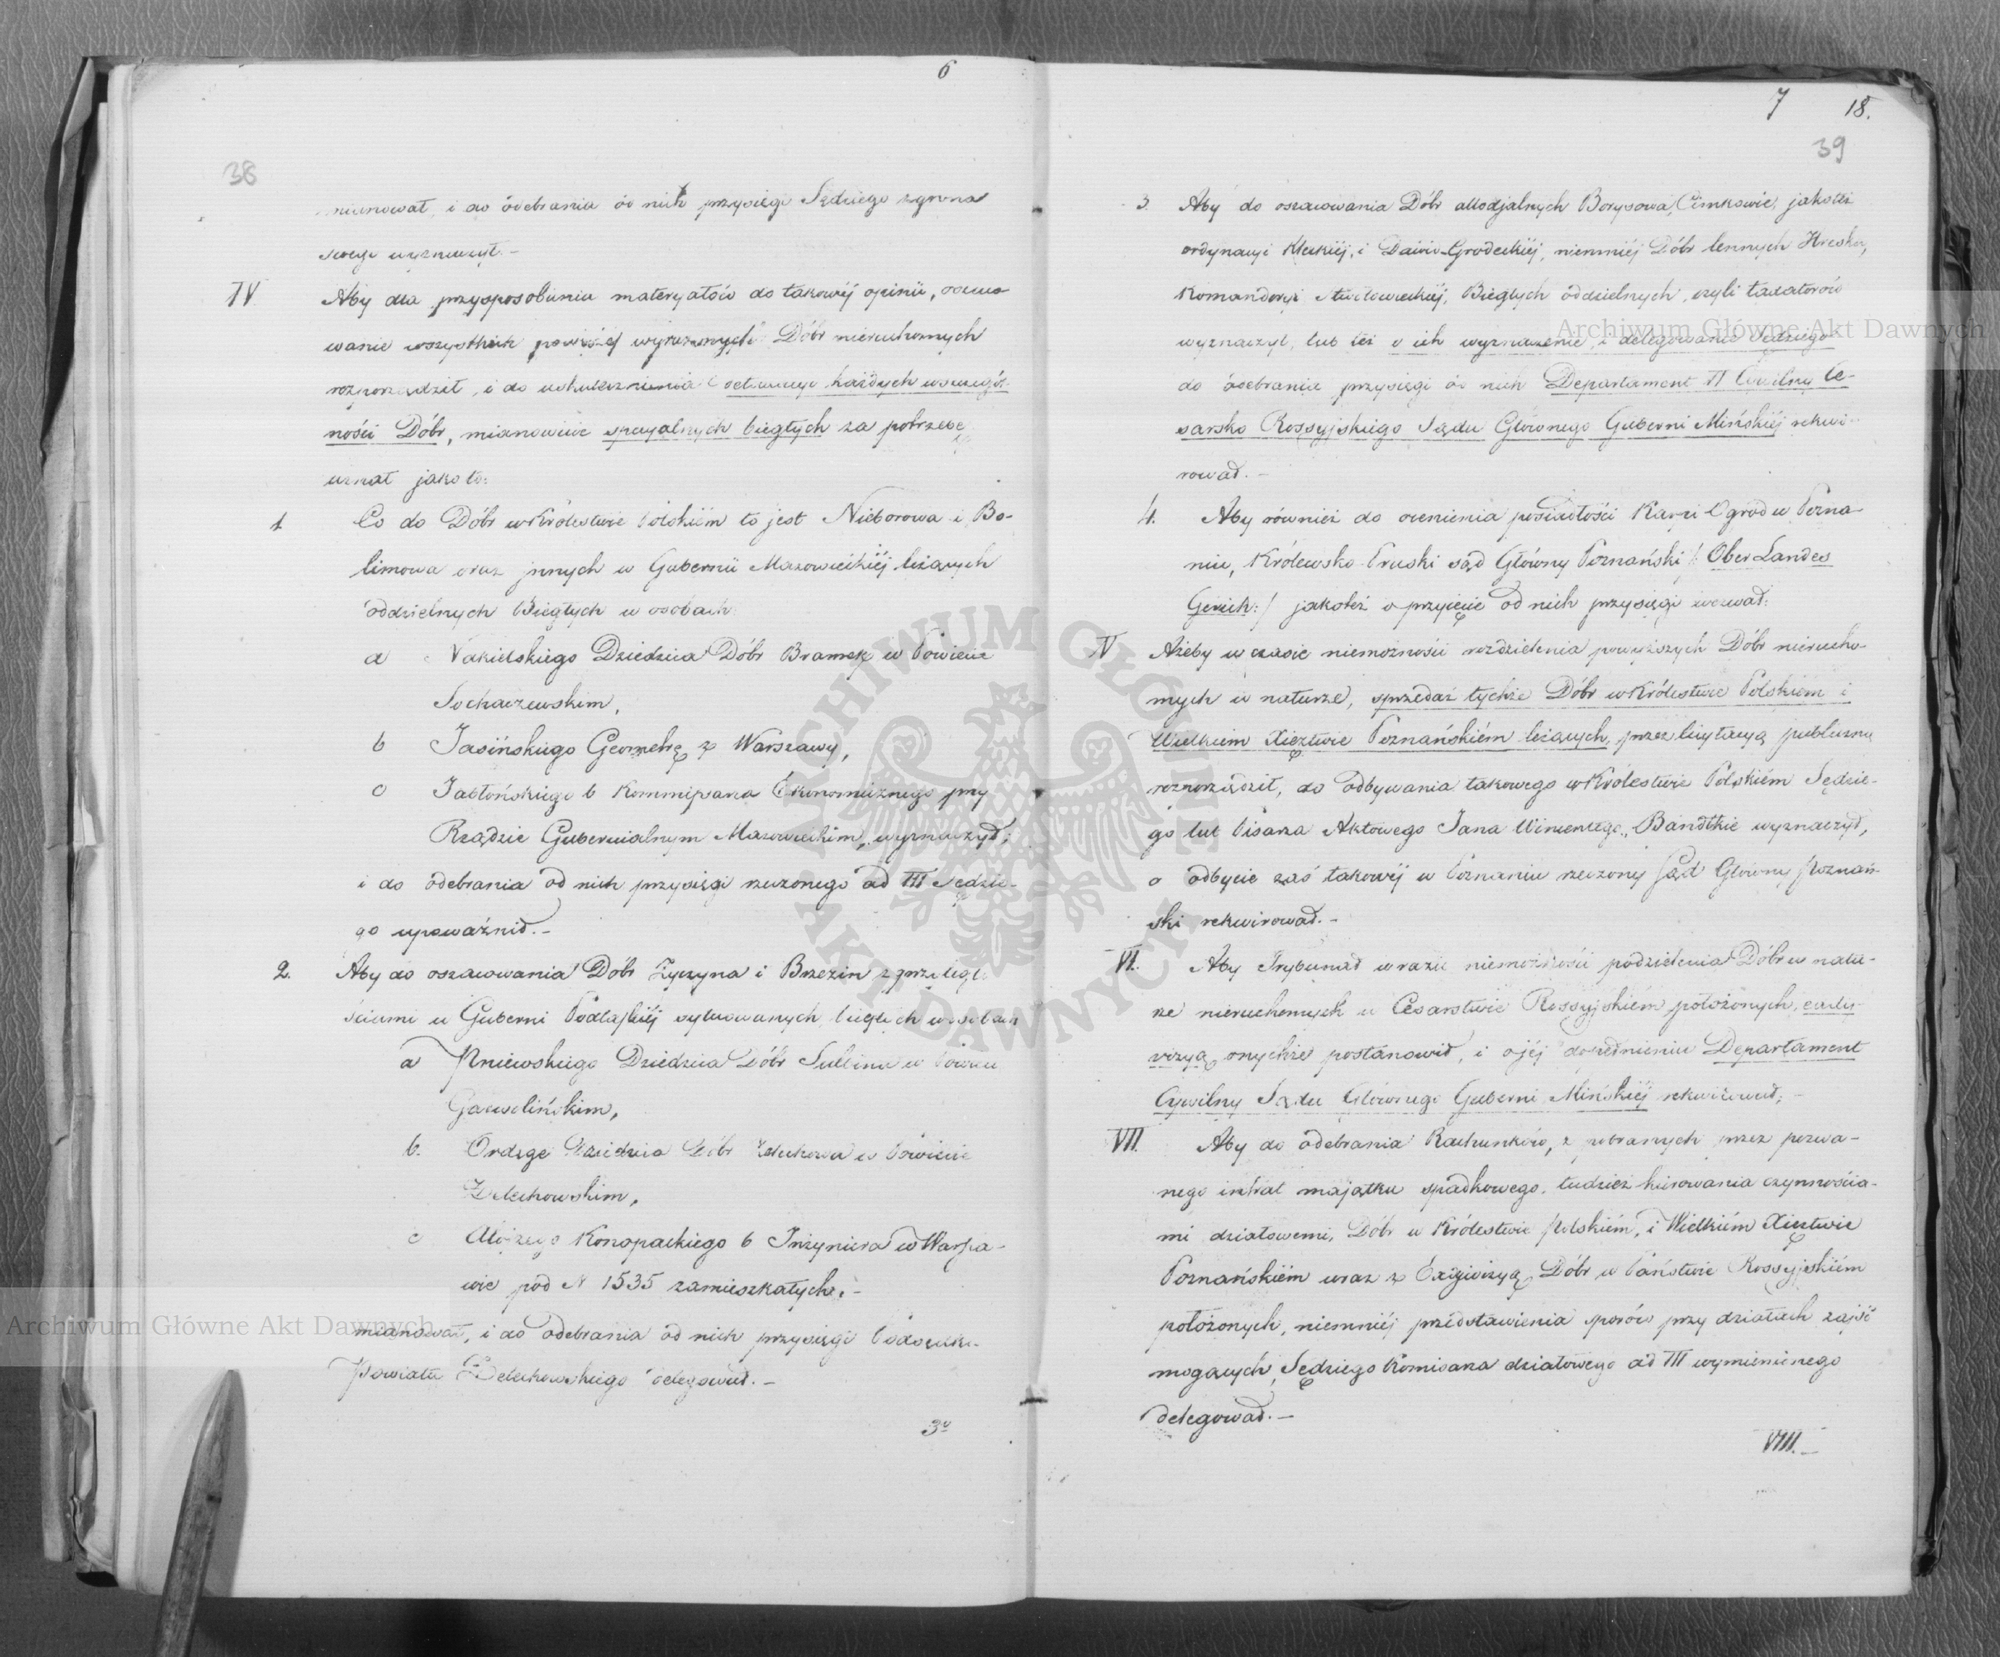 6
38
mianował, i do odebrania od nich przysięgi Sędziego z grona
swego wyznaczył.-
IV Aby dla przysposobienia materyałów do takowéj opinii, oszaco-
wanie wszystkich powyżéj wyrażonych Dóbr nieruchomych
rozporządził, i do uskutecznienia każdych w szczegól-
ności Dóbr, mianowicie specyalnych biegłych za potrzebę
uznał jako to:
1 Co do Dóbr w Królestwie Polskiém to jest Nieborowa i Bo-
limowa oraz innych w Gubernii Mazowieckiéj leżących
oddzielnych Biegłych w osobach
a Nakielskiego Dziedzica Dóbr Bramek w Powiecie
Sochaczewskim,
b Jasińskiego Geometrę z Warszawy,
c Jabłońskiego b Kommissarza Ekonomicznego przy
Rządzie Gubernialnym Mazowieckim, wyznaczył;
i do odebrania od nich przysięgi rzeczonego ad III Sędzie-
go upoważnił.-
2. Aby do oszacowania Dóbr Życzyna i Brzezin z przyległo-
ściami w Guberni Podlaskiéj sytuowanych biegłych w osobach
a Pniewskiego Dziedzica Dóbr Sulbina w Powiecie
Garwolińskim,
b. Ordęgę Dziedzica Dóbr Żelechowa w Powiecie
Żelechowskim,
c Aloizego Konopackiego b Inżyniera w Warsza-
wie pod N 1535 zamieszkałych,-
mianował, i do odebrania od nich przysięgi Podsędka
Powiatu Żelechowskiego delegował.-
3º
7 18.
39
3 Aby do oszacowania Dóbr allodjalnych Borysowa, Cimkowic, jakotéż
ordynacyi Kleckiéj, i Dawid-Grodeckiéj, niemniéj Dóbr lennych Hresku,
Komandoryi Stwołowickiéj, Biegłych oddzielnych, czyli taxatorów
wyznaczył, lub téż o ich wyznaczenie, i delegowanie Sędziego
do odebrania przysięgi od nich Departament II Cywilny Ce-
sarsko Rossyjskiego Sądu Głównego Guberni Mińskiéj rekwi-
rował.-
4. Aby również do ocenienia posiadłości Ogród w Pozna-
niu, Królewsko Pruski sąd Główny Poznański /: Ober Landes
Gerich:/ jakotéż o przyjęcie od nich przysięgi wezwał:
V Ażeby w czasie niemożności rozdzielenia powyższych Dóbr nierucho-
mych w naturze, sprzedaż tychże Dóbr w Królestwie Polskiem i
Wielkiem Xięztwie Poznańskiém leżących, przez licytacyą publiczną
rozporządził, do odbywania takowego w Królestwie Polskiém Sędzie-
go lub Pisarza Aktowego Jana Wincentego Bandtkie wyznaczył,
o odbycie zaś takowéj w Poznaniu rzeczony Sąd Główny Poznań-
ski rekwirował.-
VI. Aby Trybunał w razie niemożności podzielenia Dóbr w natu-
rze nieruchomych w Cesarstwie Rossyjskiém położonych, exdy-
wizyą onychże postanowił, i o jéj dopełnieniu Departament
Cywilny Sądu Głównego Guberni Mińskiéj rekwirował;-
VII. Aby do odebrania Rachunków, z pobranych przez pozwa-
nego intrat majątku spadkowego, tudzież kierowania czynnościa-
mi działowemi, Dóbr w Królestwie Polskiém, i Wielkiém Xięztwie
Poznańskiém wraz z Dóbr w Państwie Rossyjskiém
położonych, niemniéj przedstawienia sporów przy działach zajść
mogących, Sędziego Komisarza działowego ad III wymienionego
delegował.-
VIII.-
Archiwum Główne Akt Dawnych
Archiwum Główne Akt Dawnych
ARCHIWUM GŁÓWNE AKT DAWNYCH